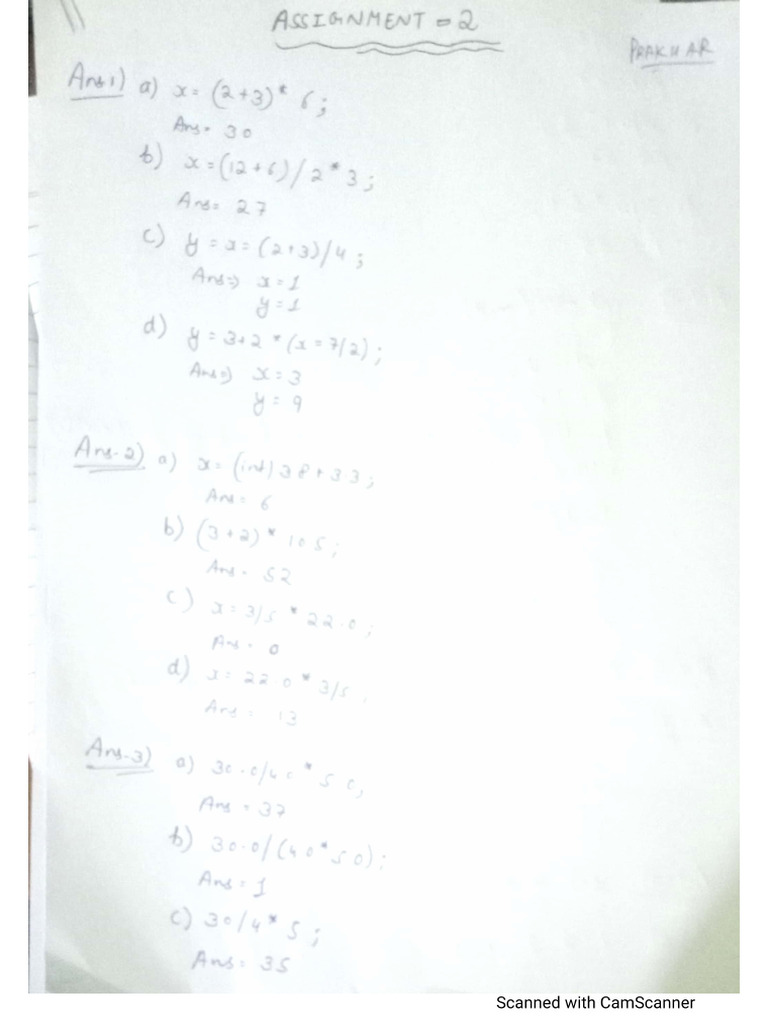 ASSIGNMENT = 2
PRAKHAR
Ans 1) a) x = (2+3) * 6 ;
Ans = 30
b) x = (12+6) / 2 * 3 ;
Ans = 27
c) y = x = (2+3)/4 ;
Ans => x = 1
y = 1
d) y = 3+2 * (x = 7/2) ;
Ans => x = 3
y = 9
Ans-2) a) x = (int) 3.8 + 3.3 ;
Ans = 6
b) (3+2) * 10.5 ;
Ans = 52
c) x = 3/5 * 22.0 ;
Ans = 0
d) x = 22.0 * 3/5 .
Ans = 13
Ans-3) a) 30.0/4.0 * 5.0 ;
Ans = 37
b) 30.0/(4.0 * 5.0) ;
Ans = 1
c) 30/4 * 5 ;
Ans = 35
Scanned with CamScanner